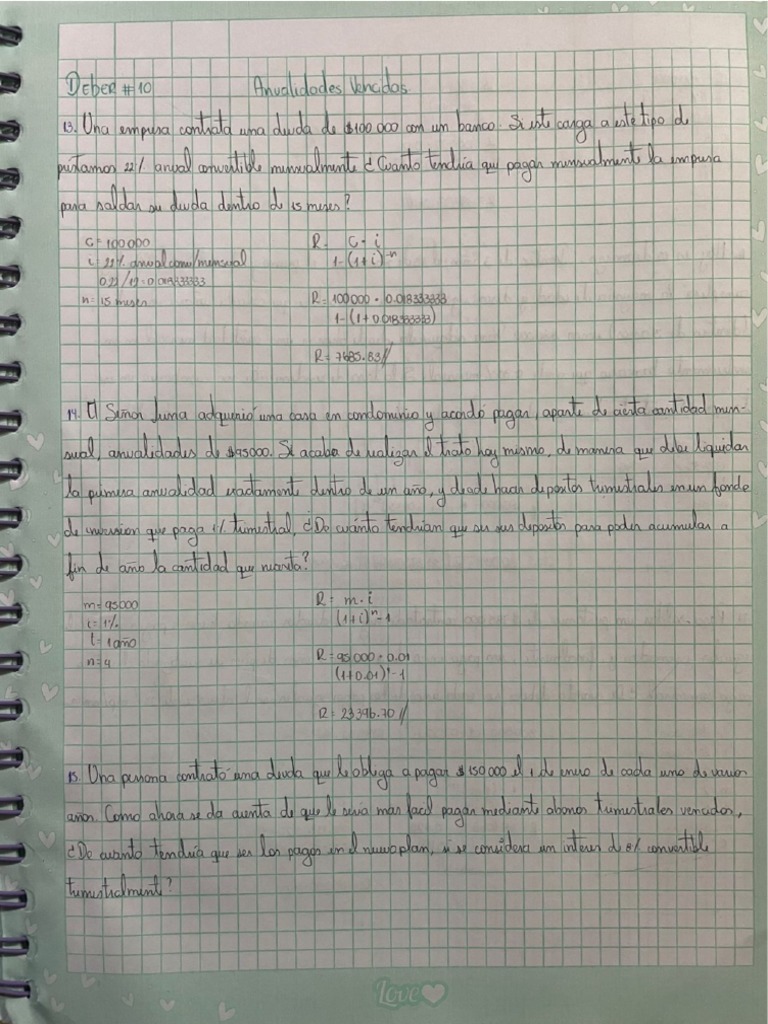 DEBER #10 Anualidades Vencidas
13. Una empresa contrata una deuda de $100.000 con un banco. Si este carga a este tipo de
préstamos 22% anual convertible mensualmente ¿Cuanto tendría que pagar mensualmente la empresa
para saldar su deuda dentro de 15 meses?
C= 100000 R= C · i
i 22% anual conv/mensual 1-(1+i)^-n
0.22/12=0.018333333
n= 15 meses R= 100000 · 0.018333333
1-(1+0.018333333)
R= 7685.83//
14. El Señor Luna adquirió una casa en condominio y acordó pagar, aparte de cierta cantidad men-
sual, anualidades de $95000. Si acaba de realizar el trato hoy mismo, de manera que debe liquidar
la primera anualidad exactamente dentro de un año, y desde hacer depositos trimestrales en un fondo
de inversion que paga 1% trimestral, ¿De cuánto tendrian que ser sus depositos para poder acumular a
fin de año la cantidad que necesita?
m= 95000 R= m · i
i= 1% (1+i)^n-1
t= 1 año
n= 4 R= 95000 · 0.01
(1+0.01)-1
R= 23396.70//
15. Una persona contrató una deuda que le obliga a pagar $150000 el 1 de enero de cada uno de varios
años. Como ahora se da cuenta de que le seria mas facil pagar mediante abonos trimestrales vencidos,
¿De cuanto tendría que ser los pagos en el nuevo plan, si se considera un interes de 8% convertible
trimestralmente?
Love